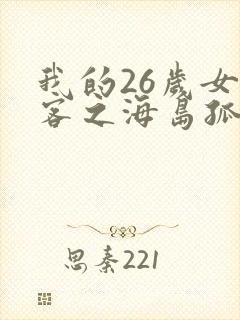 我的26歲女
客之海島孤
思秦221